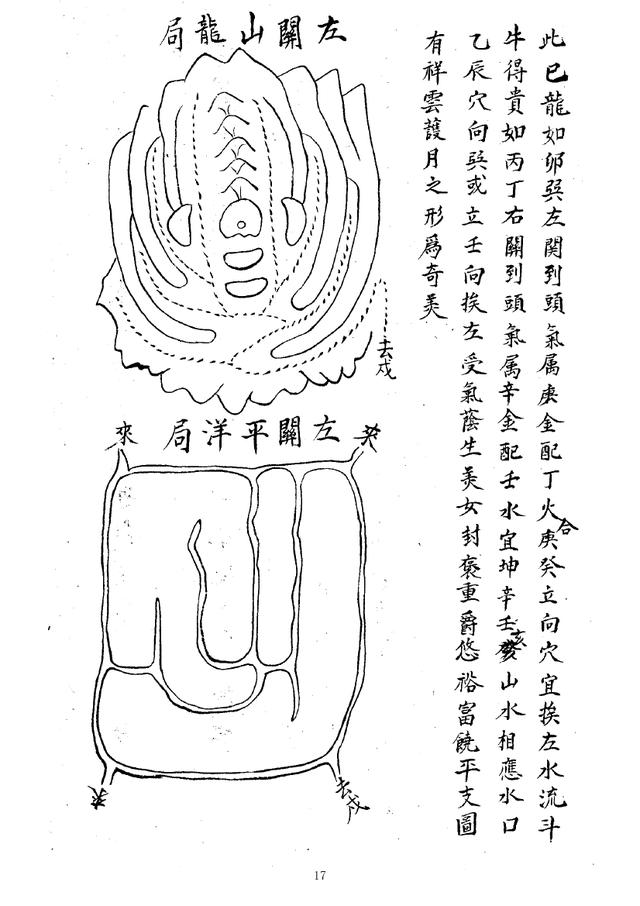 此巳龍如卯巽左関到頭氣属庚金配丁火合庚癸立向穴宜挨左水流斗
牛得貴如丙丁右關到頭氣属辛金配壬水宜坤辛壬亥山水相應水口
乙辰穴向巽或立壬向挨左受氣蔭生美女封褒重爵悠裕富饒平支圖
有祥雲護月之形爲奇美
左關山龍局
去戌
左關平洋局
來
去戌
17